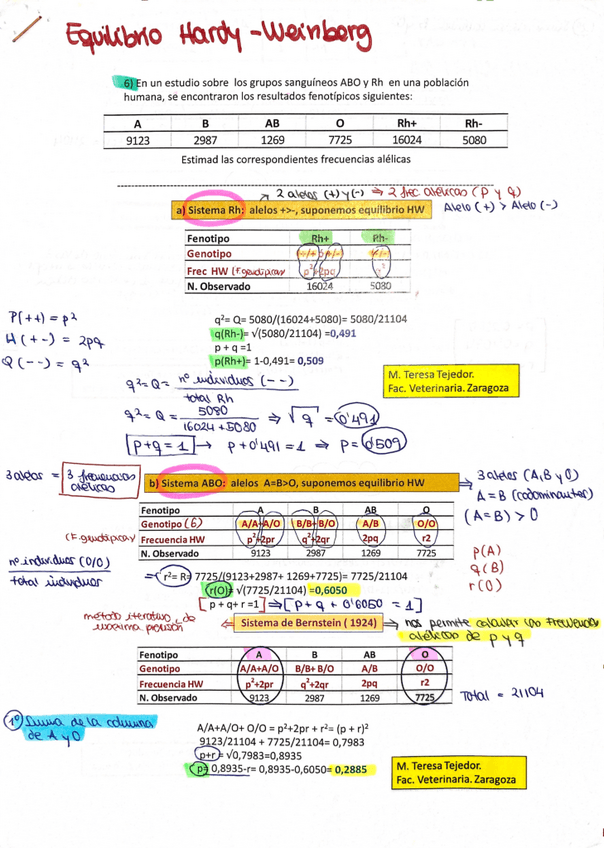 Equilibrio Hardy-Weinberg
6) En un estudio sobre los grupos sanguíneos ABO y Rh en una población
humana, se encontraron los resultados fenotípicos siguientes:
A B AB O Rh+ Rh-
9123 2987 1269 7725 16024 5080
Estimad las correspondientes frecuencias alélicas
2 alelos (+) y (-) ⇒ 2 frec alélicas (p y q)
a) Sistema Rh: alelos +>-, suponemos equilibrio HW
Alelo (+) > Alelo (-)
Fenotipo Rh+ Rh-
Genotipo
Frec HW p²+2pq
N. Observado 16024 5080
P(++) = p²
H(+-) = 2pq
Q(--) = q²
q²= Q= 5080/(16024+5080)= 5080/21104
q(Rh-)= √(5080/21104) =0,491
p + q =1
p(Rh+)= 1-0,491= 0,509
M. Teresa Tejedor.
Fac. Veterinaria. Zaragoza
q²=Q= nº individuos (--)
total Rh
q²=Q= 5080 ⇒ √q = 0'491
16024+5080
p+q=1 → p+0'491=1 ⇒ p=0'509
3 alelos = 3 frecuencias alélicas
b) Sistema ABO: alelos A=B>O, suponemos equilibrio HW
3 alelos (A,B y O)
A=B (codominantes)
(A=B) > O
Fenotipo A B AB O
Genotipo (6) A/A+A/O B/B+B/O A/B O/O
Frecuencia HW p²+2pr q²+2qr 2pq r2
N. Observado 9123 2987 1269 7725
p(A)
q(B)
r(O)
nº individuos (O/O)
total individuos
= r²= R= 7725/(9123+2987+ 1269+7725)= 7725/21104
r(O)= √(7725/21104) =0,6050
[p + q + r =1] ⇒ [p + q + 0'6050 = 1]
método iterativo, de
máxima
Sistema de Bernstein ( 1924)
nos permite calcular las frecuencias
alélicas de p y q
Fenotipo A B AB O
Genotipo A/A+A/O B/B+ B/O A/B O/O
Frecuencia HW p²+2pr q²+2qr 2pq r2
N. Observado 9123 2987 1269 7725
Total = 21104
1º Suma de la columna
de A y O
A/A+A/O+ O/O = p²+2pr + r²= (p + r)²
9123/21104 + 7725/21104= 0,7983
p+r = √0,7983=0,8935
p= 0,8935-r= 0,8935-0,6050= 0,2885
M. Teresa Tejedor.
Fac. Veterinaria. Zaragoza